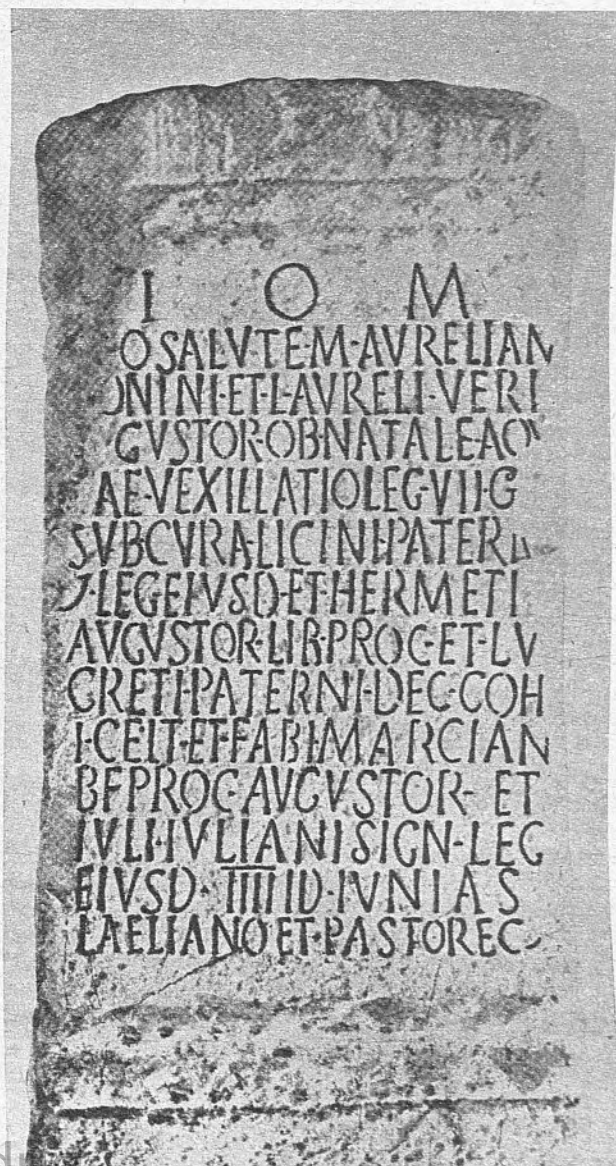 I O M
O·SALVTE·M·AVRELI·AN
ONINI·ET·L·AVRELI·VERI
GVSTOR·OB·NATALE·AQV
AE·VEXILLATIO·LEG·VII·G
SVB·CVRA·LICINI·PATER
LEG·EIVSD·ET·HERMETI
AVGVSTOR·LIB·PROC·ET·LV
CRETI·PATERNI·DEC·COH
I·CELT·ET·FABI·MARCIAN
BF·PROC·AVGVSTOR·ET
IVLI·IVLIANI·SIGN·LEG
EIVSD·IIII·ID·IVNIAS
LAELIANO·ET·PASTORE·C